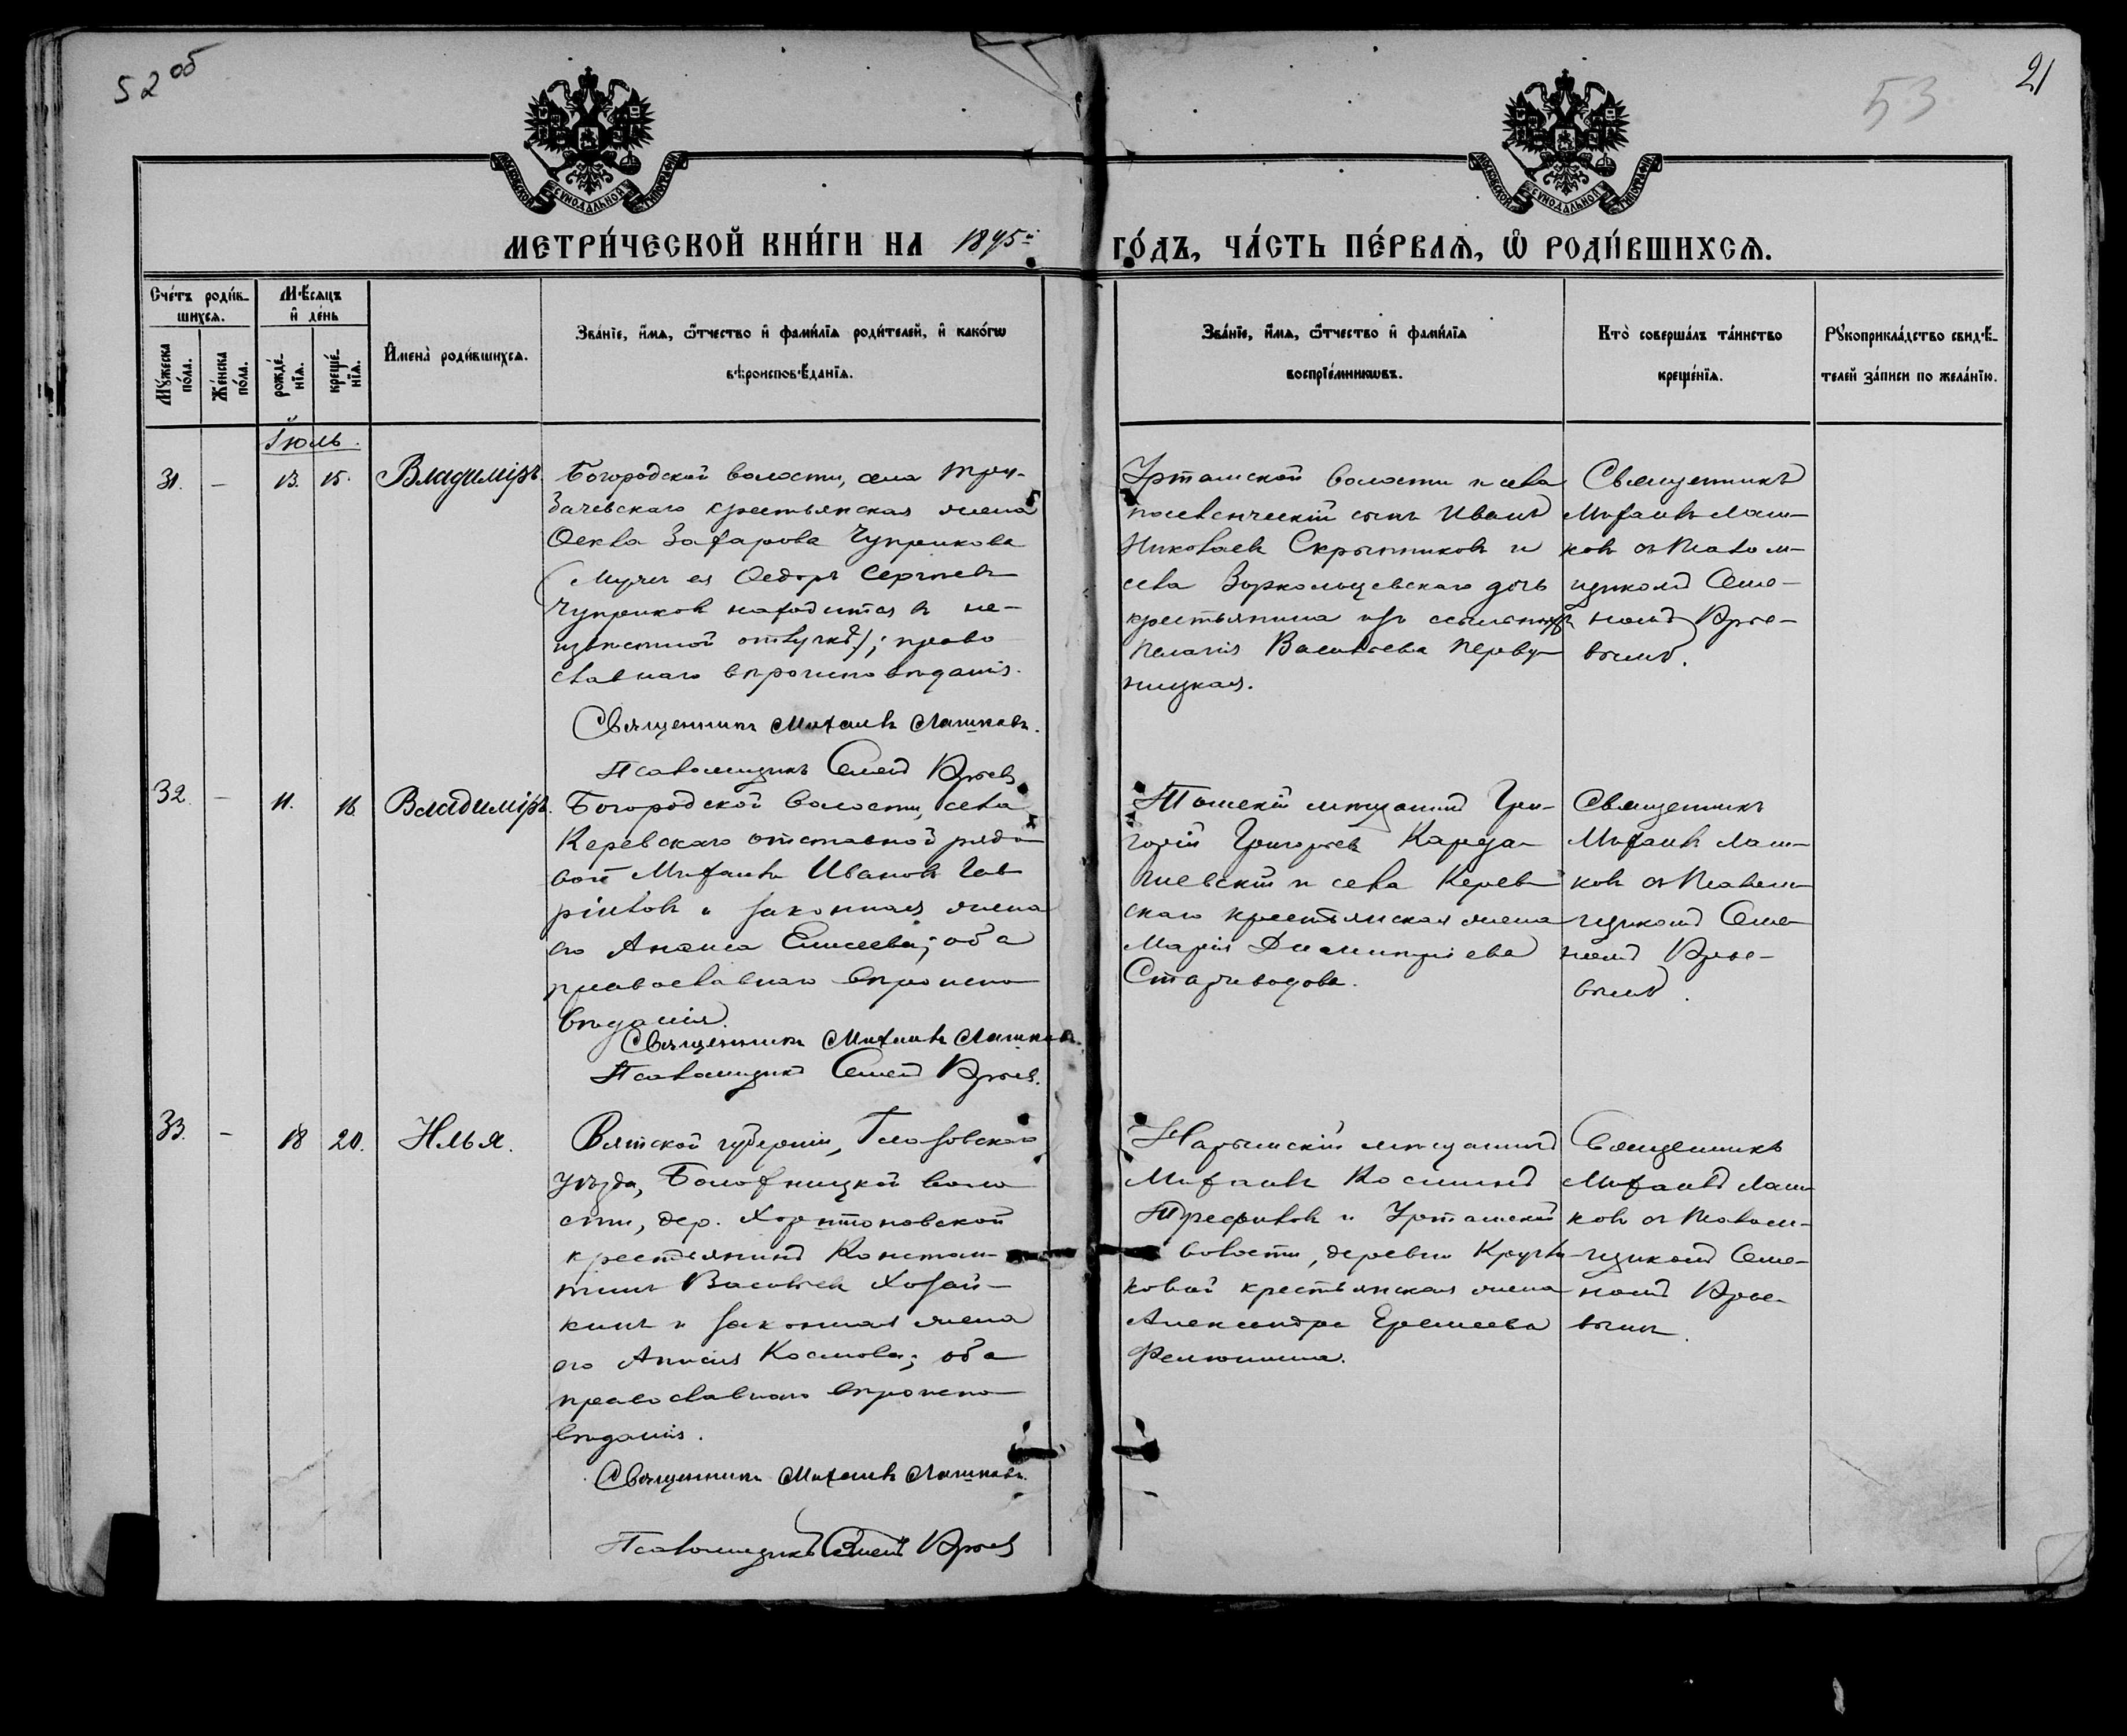 52 об
53
21
МОСКОВСКОЙ СѴНОДАЛЬНОЙ ТИПОГРАФІИ
МОСКОВСКОЙ СѴНОДАЛЬНОЙ ТИПОГРАФІИ
МЕТРИ́ЧЕСКОЙ КНИ́ГИ НА 1895й ГО́ДЪ, ЧА́СТЬ ПЕ́РВАѦ, Ѡ РОДИ́ВШИХСѦ.
Сче́тъ роди́в-
шихсѧ.
Мꙋ́жеска
по́ла.
Же́нска
по́ла.
Мѣ́сѧцъ
и де́нь
рожде́-
нїѧ.
креще́-
нїѧ.
Имена̀ роди́вшихсѧ.
Зва́нїе, и́мѧ, ѻ́тчество и фами́лїѧ роди́телей, и како́гѡ
вѣроисповѣ́данїѧ.
Зва́нїе, и́мѧ, ѻ́тчество и фами́лїѧ
воспрїе́мникѡвъ.
Кто̀ соверша́лъ та́инство
креще́нїѧ.
Рꙋкоприкла́дство свидѣ́-
телей за́писи по жела́нїю.
Іюль.
31. — 13. 15. Владиміръ.
Богородской волости, села Тру-
бачевскаго крестьянская жена
Ѳекла Захарова Чуприкова
(Мужъ ея Ѳедоръ Сергѣевъ
Чуприковъ находится въ не-
извѣстной отлучкѣ); право
славнаго вѣроисповѣданія.
Священникъ Михаилъ Лашковъ.
Псаломщикъ Семенъ
Уртамской волости и села
Иванъ
Николаевъ Скрыпниковъ и
села Ворколыцевскаго дочь
крестьянина изъ ссыльныхъ
Пелагія Васильева

Священникъ
Михаилъ Лаш-
ковъ съ Псалом-
щикомъ Семе-
номъ
32. — 11. 16. Владиміръ.
Богородской волости, села
Керевскаго отставной рядо
вой Михаилъ Ивановъ Гав
риловъ и законная жена
его Елисеева; оба
православнаго вѣроиспо
вѣданія.
Священникъ Михаилъ Лашковъ.
Псаломщикъ Семенъ
Томскій мѣщанинъ Гри-
горій Григорьевъ
и села Керев
скаго крестьянская жена
Марія Димитріева
Стариводова.
Священникъ
Михаилъ Лаш-
ковъ съ Псалом-
щикомъ Семе
номъ
33. — 18 20. Илья.
Вятской губерніи, Глазовскаго
уѣзда, волo
сти, дер.
крестьянинъ Констан-
тинъ Васильевъ Хозяй-
кинъ и законная жена
его Анисія Космова; оба
православнаго вѣроиспо
вѣданія.
Священникъ Михаилъ Лашковъ.
Псаломщикъ Семенъ
Нарымскій мѣщанинъ
Михаилъ Косминъ
Трефиловъ и Уртамской
волости, деревни
крестьянская жена
Александра Еремеева

Священникъ
Михаилъ Лаш
ковъ съ Псалом-
щикомъ Семе-
номъ